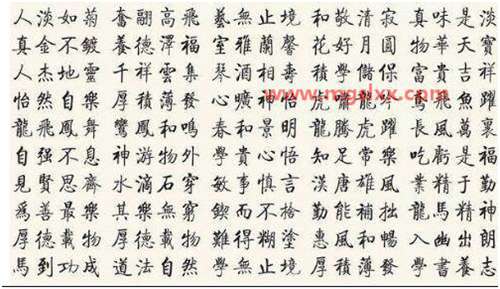 人淡如菊 奮翮高飛 藝無止境 和敬清寂 真味是淡
真金不鍍 養德澤福 室雅蘭馨 花好月圓 物華天寶
人杰地靈 千祥雲集 琴酒相壽 積學儲保 富貴吉祥
怡然自樂 厚積薄發 心曠神怡 虎龍吟 鳶飛魚躍
龍飛鳳舞 鸞鳳和鳴 春和景明 龍騰虎躍 長風萬裏
自强不息 神游物外 學貴心悟 知足常樂 吃虧是福
見賢思齊 水滴石穿 敏事慎言 漢唐雄風 業精于勤
爲善最樂 其樂無窮 鍥而不捨 勤能補拙 龍馬精神
厚德載物 厚德載物 難得糊塗 惠風和暢 入幽出朗
馬到功成 道法自然 學無止境 厚積薄發 學書養志